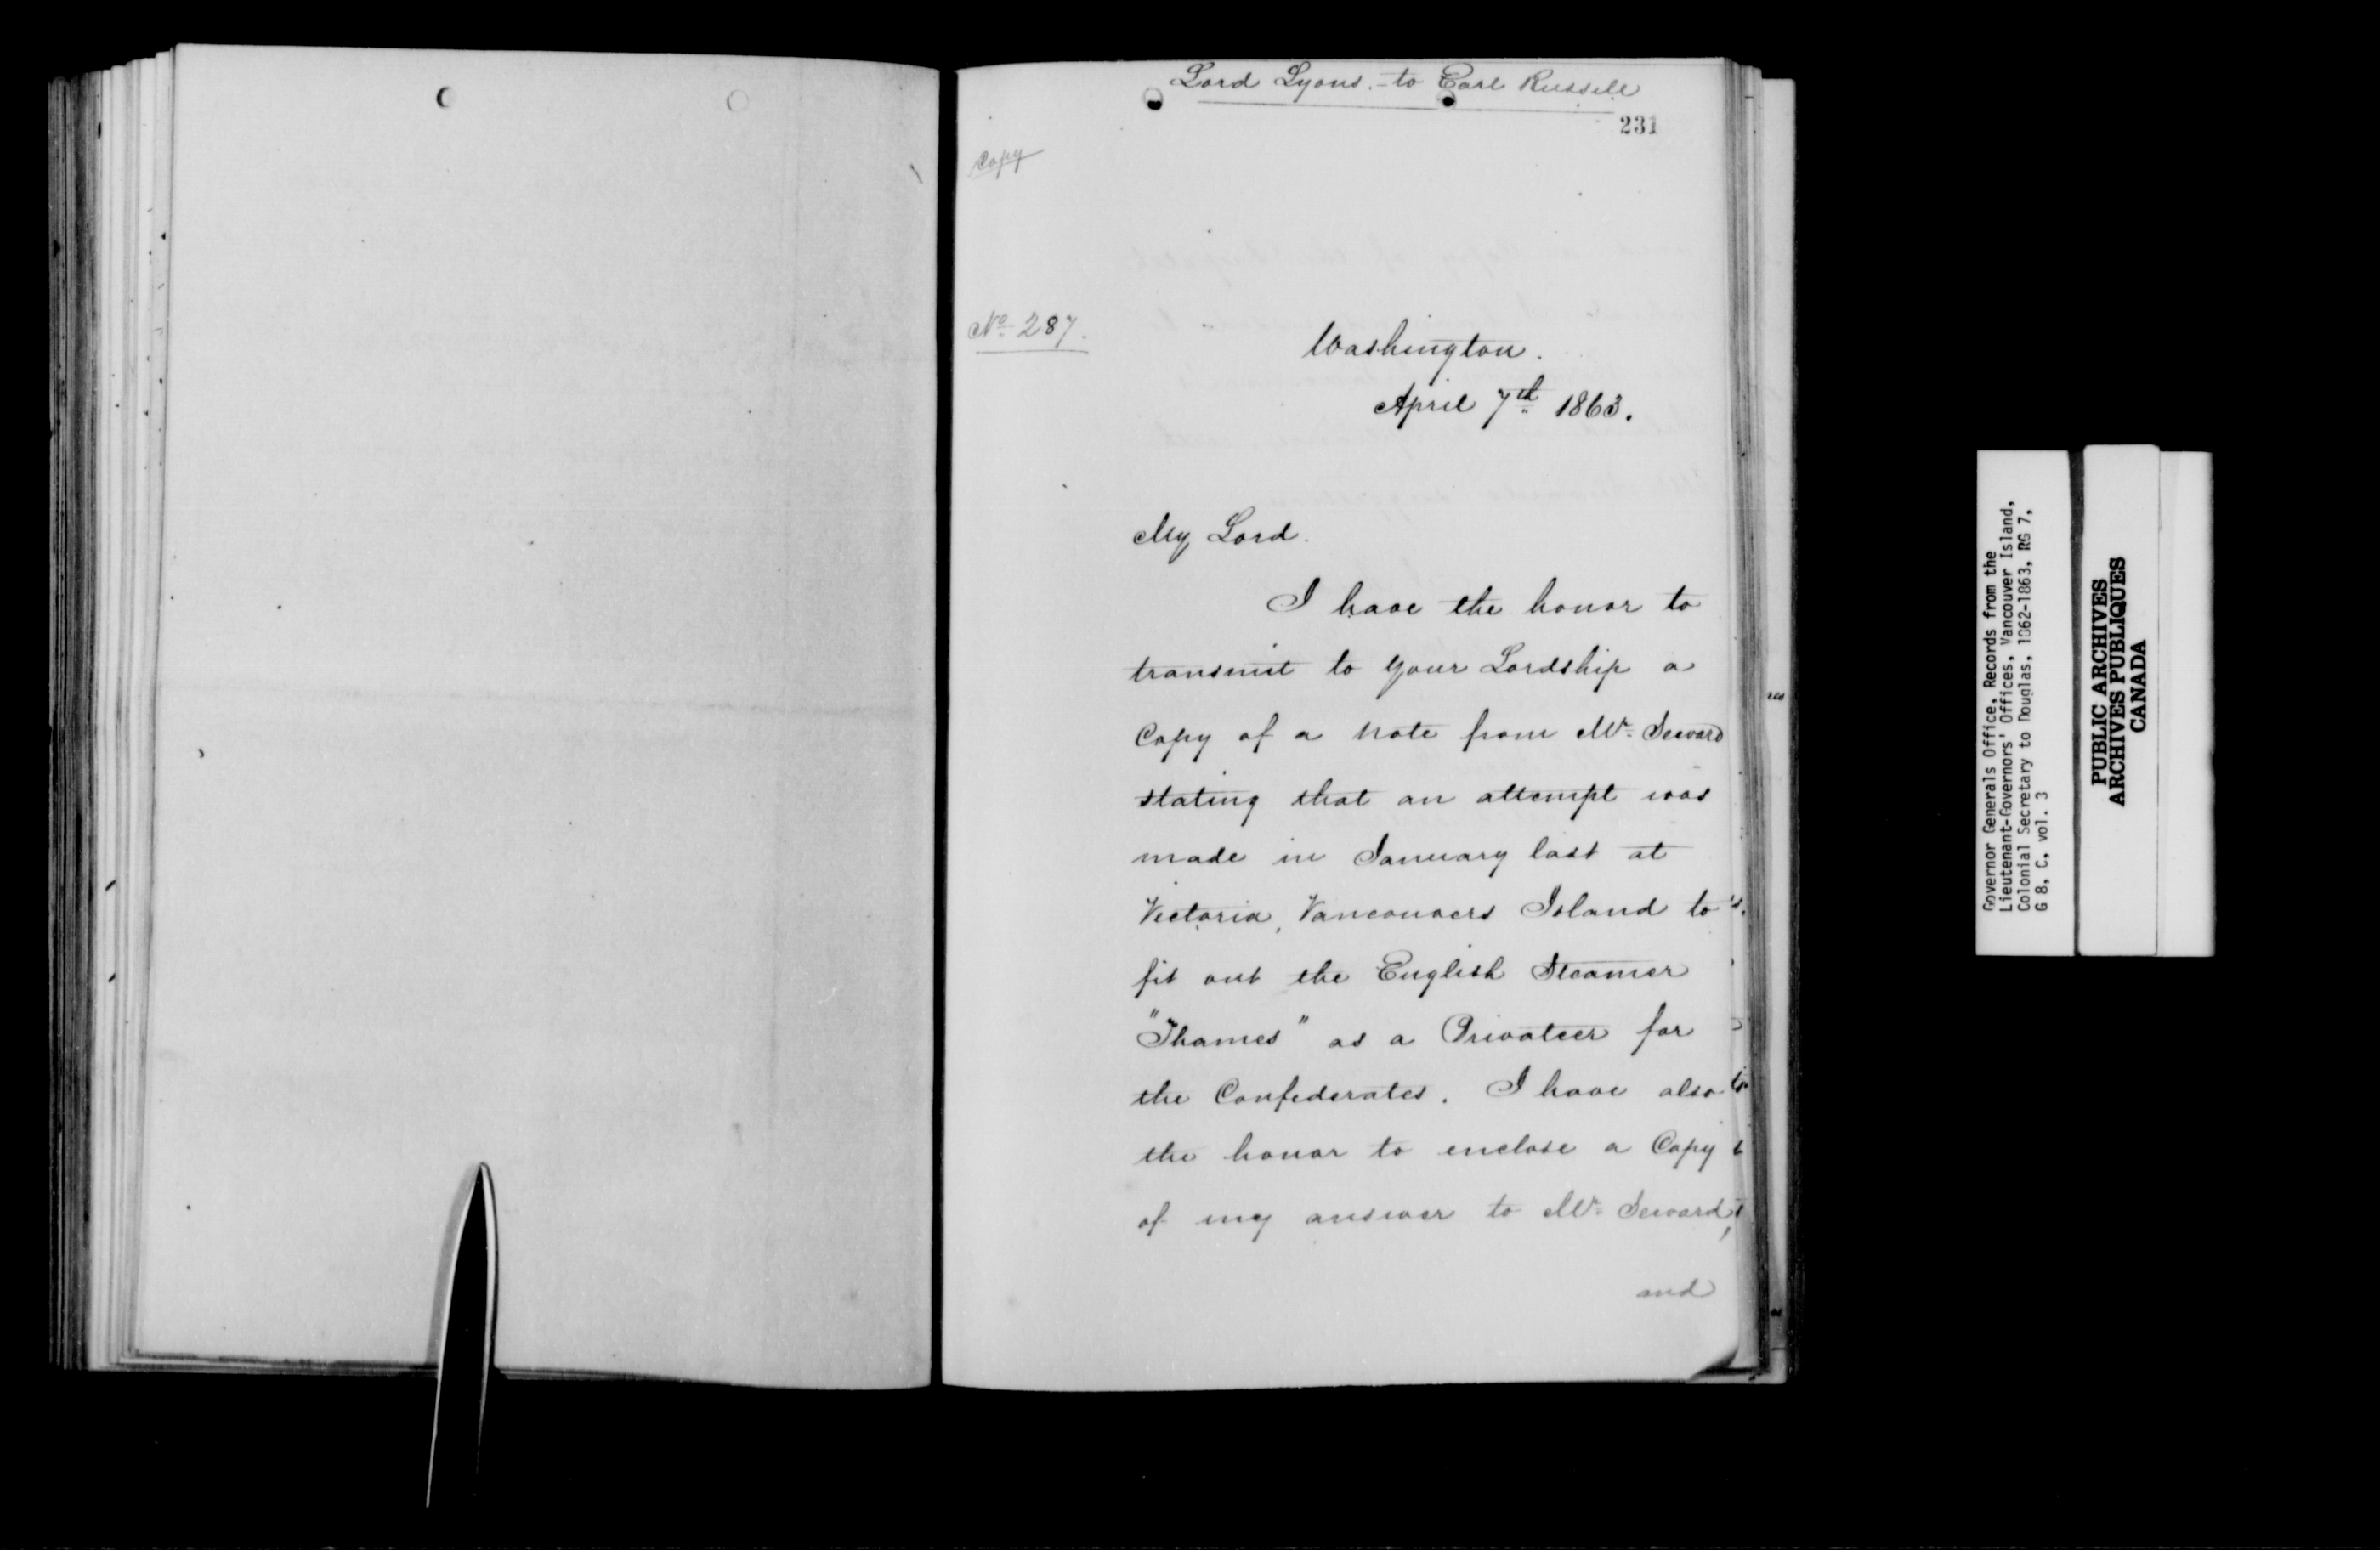 Lord Lyons. to Earl Russell
231
Copy
No. 287.
Washington.
April 7th 1863.
My Lord.
I have the honor to
transmit to Your Lordship a
Copy of a Note from Mr. Seward
stating that an attempt was
made in January last at
Victoria, Vancouvers Island to
fit out the English Steamer
"Thames" as a Privateer for
the Confederates. I have also
the honor to enclose a Copy
of my answer to Mr. Seward,
and
Governor Generals Office, Records from the
Lieutenant-Governors' Offices, Vancouver Island,
Colonial Secretary to Douglas, 1862-1863, RG 7,
G 8, C, vol. 3
PUBLIC ARCHIVES
ARCHIVES PUBLIQUES
CANADA